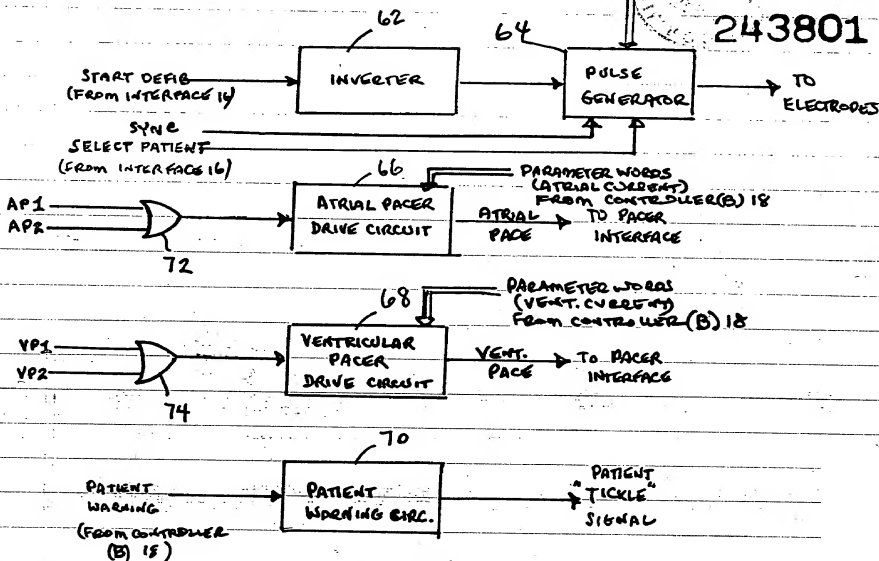 243801
62
64
START DEFIB
(FROM INTERFACE 16)
INVERTER
PULSE
GENERATOR
TO
ELECTRODES
SYNC
SELECT PATIENT
(FROM INTERFACE 16)
66
PARAMETER WORDS
(ATRIAL CURRENT)
FROM CONTROLLER (B) 18
AP1
AP2
72
ATRIAL PACER
DRIVE CIRCUIT
ATRIAL
PACE
TO PACER
INTERFACE
68
PARAMETER WORDS
(VENT. CURRENT)
FROM CONTROLLER (B) 18
VP1
VP2
74
VENTRICULAR
PACER
DRIVE CIRCUIT
VENT.
PACE
TO PACER
INTERFACE
70
PATIENT
WARNING
(FROM CONTROLLER
(B) 18)
PATIENT
WARNING CIRC.
PATIENT
"TICKLE"
SIGNAL